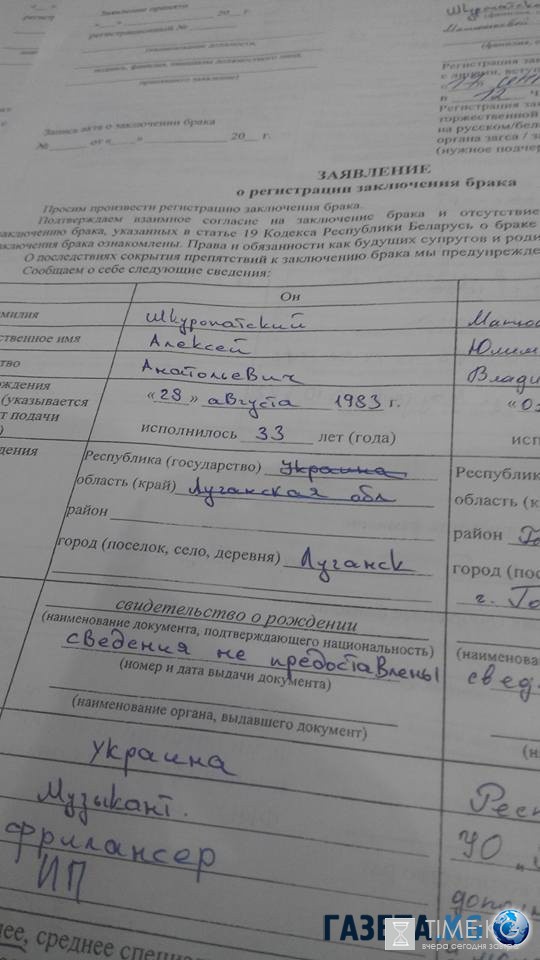 Заявление принято
«___» ________ 20__ г.
регистрационный № ____
(наименование должности,
подпись, фамилия, инициалы должностного лица,
принявшего заявление)
Запись акта о заключении брака
№ ____ от «___» ________ 20__ г.
Шкуропатский
Регистрация
с лицами,
в 12 ч
торжественной
на русском/бел
органа загса / з
(нужное подчер
ЗАЯВЛЕНИЕ
о регистрации заключения брака
Просим произвести регистрацию заключения брака.
Подтверждаем взаимное согласие на заключение брака и отсутствие
заключению брака, указанных в статье 19 Кодекса Республики Беларусь о браке
аключения брака ознакомлены. Права и обязанности как будущих супругов и роди
О последствиях сокрытия препятствий к заключению брака мы предупрежде
Сообщаем о себе следующие сведения:
Он
милия Шкуропатский
ственное имя Алексей Юли
тво Анатольевич Влади
ождения «28» августа 1983 г. «0
(указывается
т подачи исполнилось 33 лет (года) исп
)
дения Республика (государство) Украина Республик
область (край) Луганская обл область (к
район район Го
город (поселок, село, деревня) Луганск город (пос
г. Го
свидетельство о рождении
(наименование документа, подтверждающего национальность) (наименова
сведения не предоставлены свед
(номер и дата выдачи документа)
(наименование органа, выдавшего документ) (н
Украина Респ
Музыкант. УО „
фрилансер
ИП допол
нее, среднее специ
ГАЗЕТА.MS
TIME-K
вчера сегодня завтра